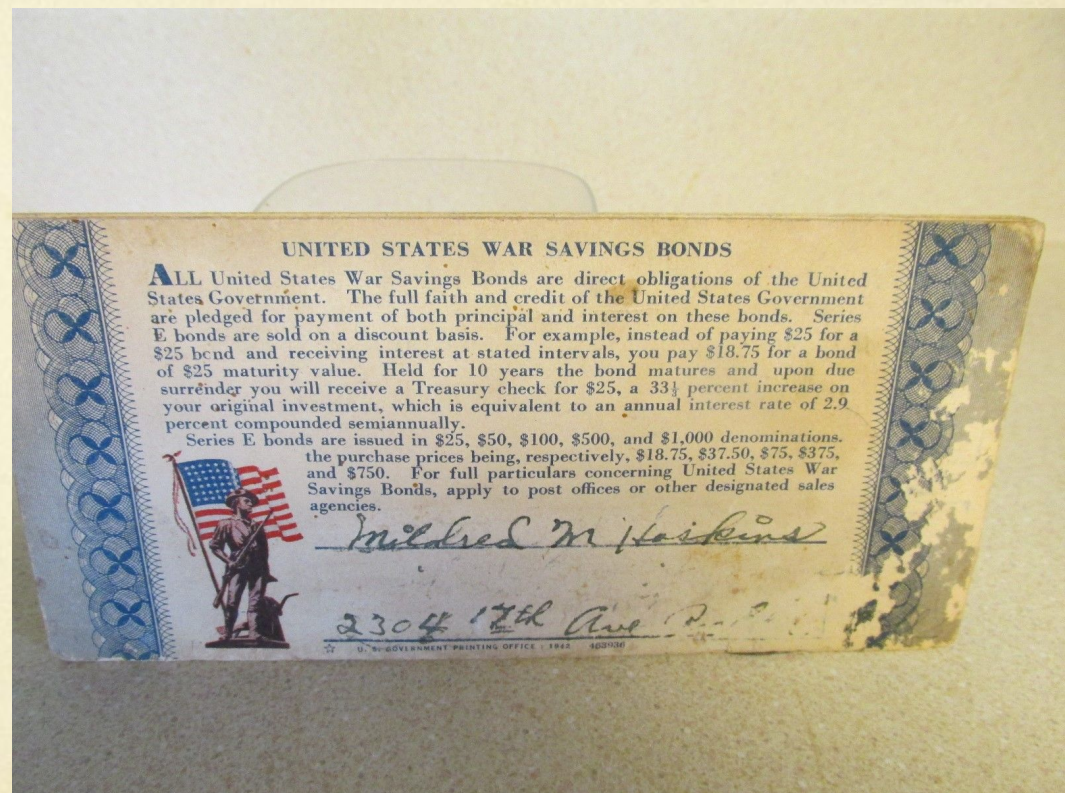 UNITED STATES WAR SAVINGS BONDS
ALL United States War Savings Bonds are direct obligations of the United
States Government. The full faith and credit of the United States Government
are pledged for payment of both principal and interest on these bonds. Series
E bonds are sold on a discount basis. For example, instead of paying $25 for a
$25 bond and receiving interest at stated intervals, you pay $18.75 for a bond
of $25 maturity value. Held for 10 years the bond matures and upon due
surrender you will receive a Treasury check for $25, a 33⅓ percent increase on
your original investment, which is equivalent to an annual interest rate of 2.9
percent compounded semiannually.
Series E bonds are issued in $25, $50, $100, $500, and $1,000 denominations.
the purchase prices being, respectively, $18.75, $37.50, $75, $375,
and $750. For full particulars concerning United States War
Savings Bonds, apply to post offices or other designated sales
agencies.
Mildred M Hoskins
2304 17th Ave
U. S. GOVERNMENT PRINTING OFFICE : 1942